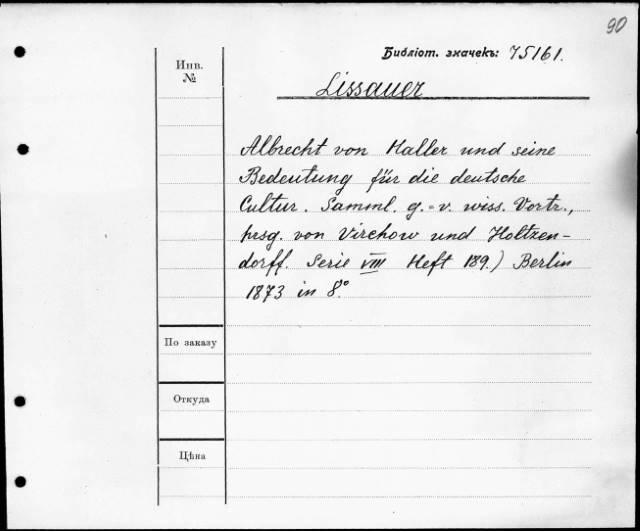 90
Библіот. значекъ: 75161.
Инв.
№
Lissauer
Albrecht von Haller und seine
Bedeutung für die deutsche
Cultur. Samml. g.=v. wiss. Vortr.,
hrsg. von Virchow und Holtzen-
dorff. Serie VIII Heft 189.) Berlin
1873 in 8°.
По заказу
Откуда
Цѣна